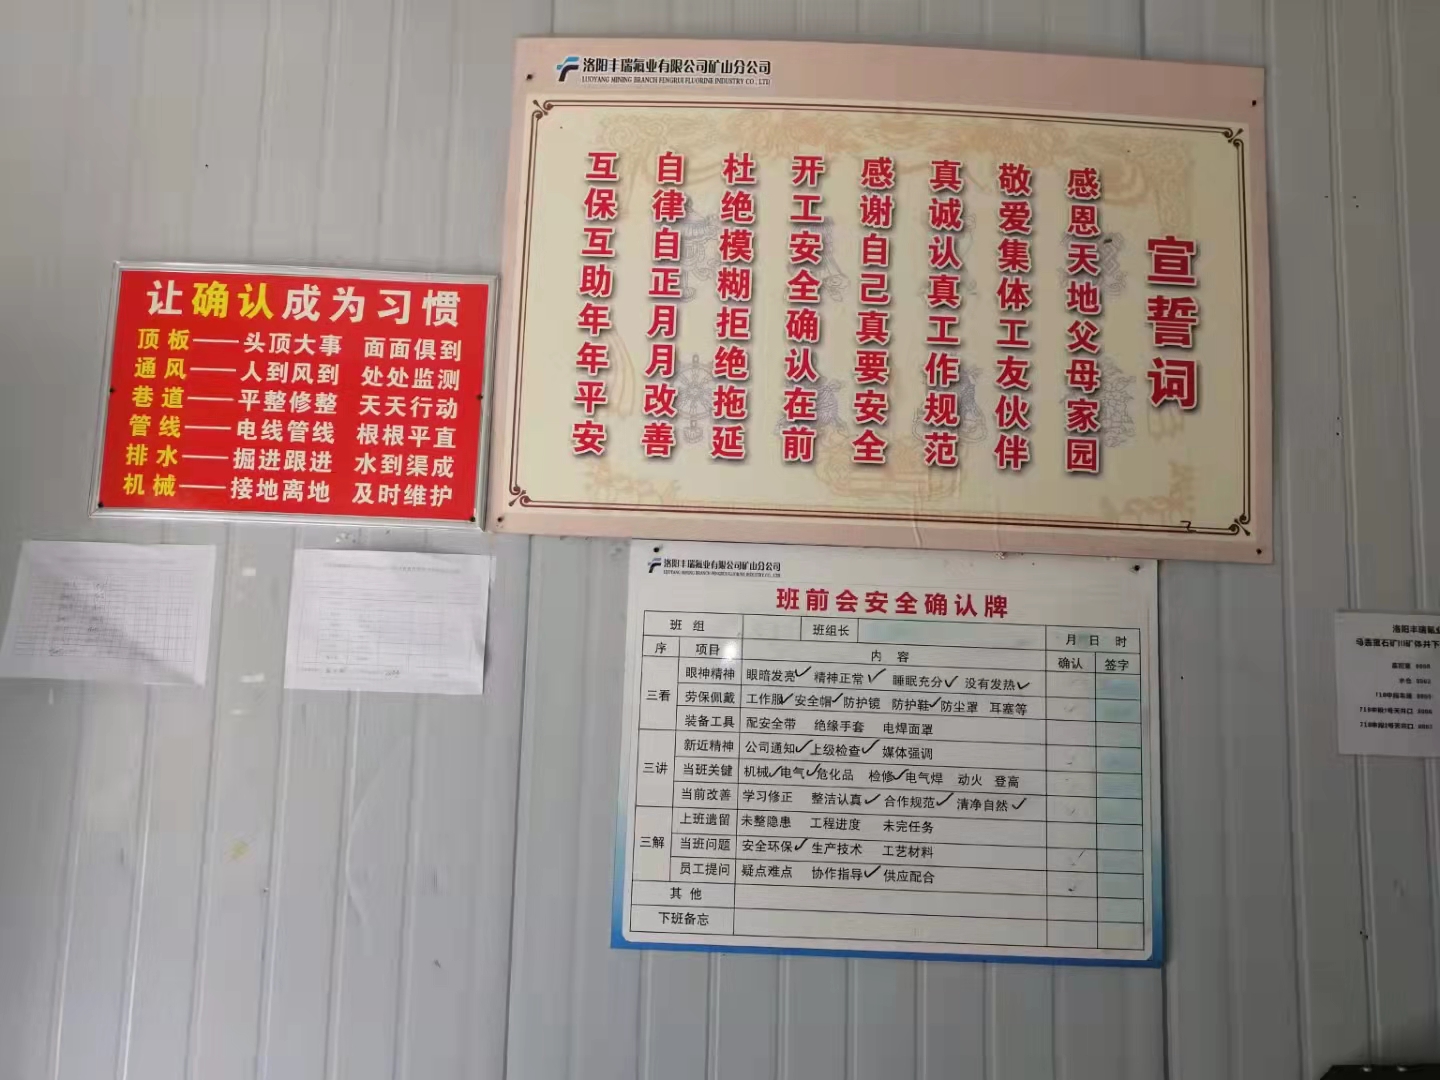 让确认成为习惯
顶板——头顶大事 面面俱到
通风——人到风到 处处监测
巷道——平整修整 天天行动
管线——电线管线 根根平直
排水——掘进跟进 水到渠成
机械——接地离地 及时维护
洛阳丰瑞氟业有限公司矿山分公司
LUOYANG MINING BRANCH FENGRUI FLUORINE INDUSTRY CO., LTD
宣誓词
感恩天地父母家园
敬爱集体工友伙伴
真诚认真工作规范
感谢自己真要安全
开工安全确认在前
杜绝模糊拒绝拖延
自律自正月月改善
互保互助年年平安
洛阳丰瑞氟业有限公司矿山分公司
LUOYANG MINING BRANCH FENGRUI FLUORINE INDUSTRY CO., LTD
班前会安全确认牌
班组 班组长 月 日 时
序 项目 内容 确认 签字
三看 眼神精神 眼暗发亮✓ 精神正常✓ 睡眠充分✓ 没有发热✓
劳保佩戴 工作服✓ 安全帽✓ 防护镜 防护鞋✓ 防尘罩 耳塞等
装备工具 配安全带 绝缘手套 电焊面罩
三讲 新近精神 公司通知✓ 上级检查✓ 媒体强调
当班关键 机械✓ 电气✓ 危化品 检修✓ 电气焊 动火 登高
当前改善 学习修正 整洁认真✓ 合作规范✓ 清净自然✓
三解 上班遗留 未整隐患 工程进度 未完任务
当班问题 安全环保✓ 生产技术 工艺材料
员工提问 疑点难点 协作指导✓ 供应配合
其他
下班备忘
洛阳丰瑞氟业